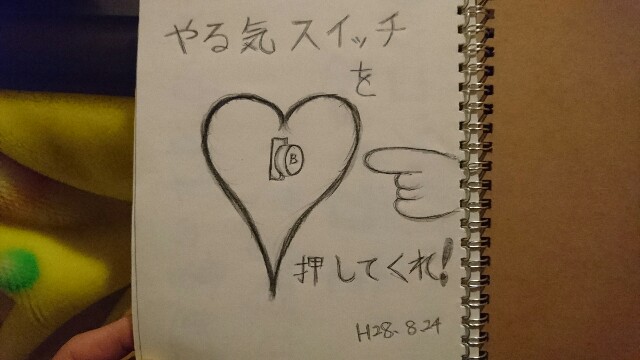 やる気スイッチ
を
B
押してくれ!
H28.8.24